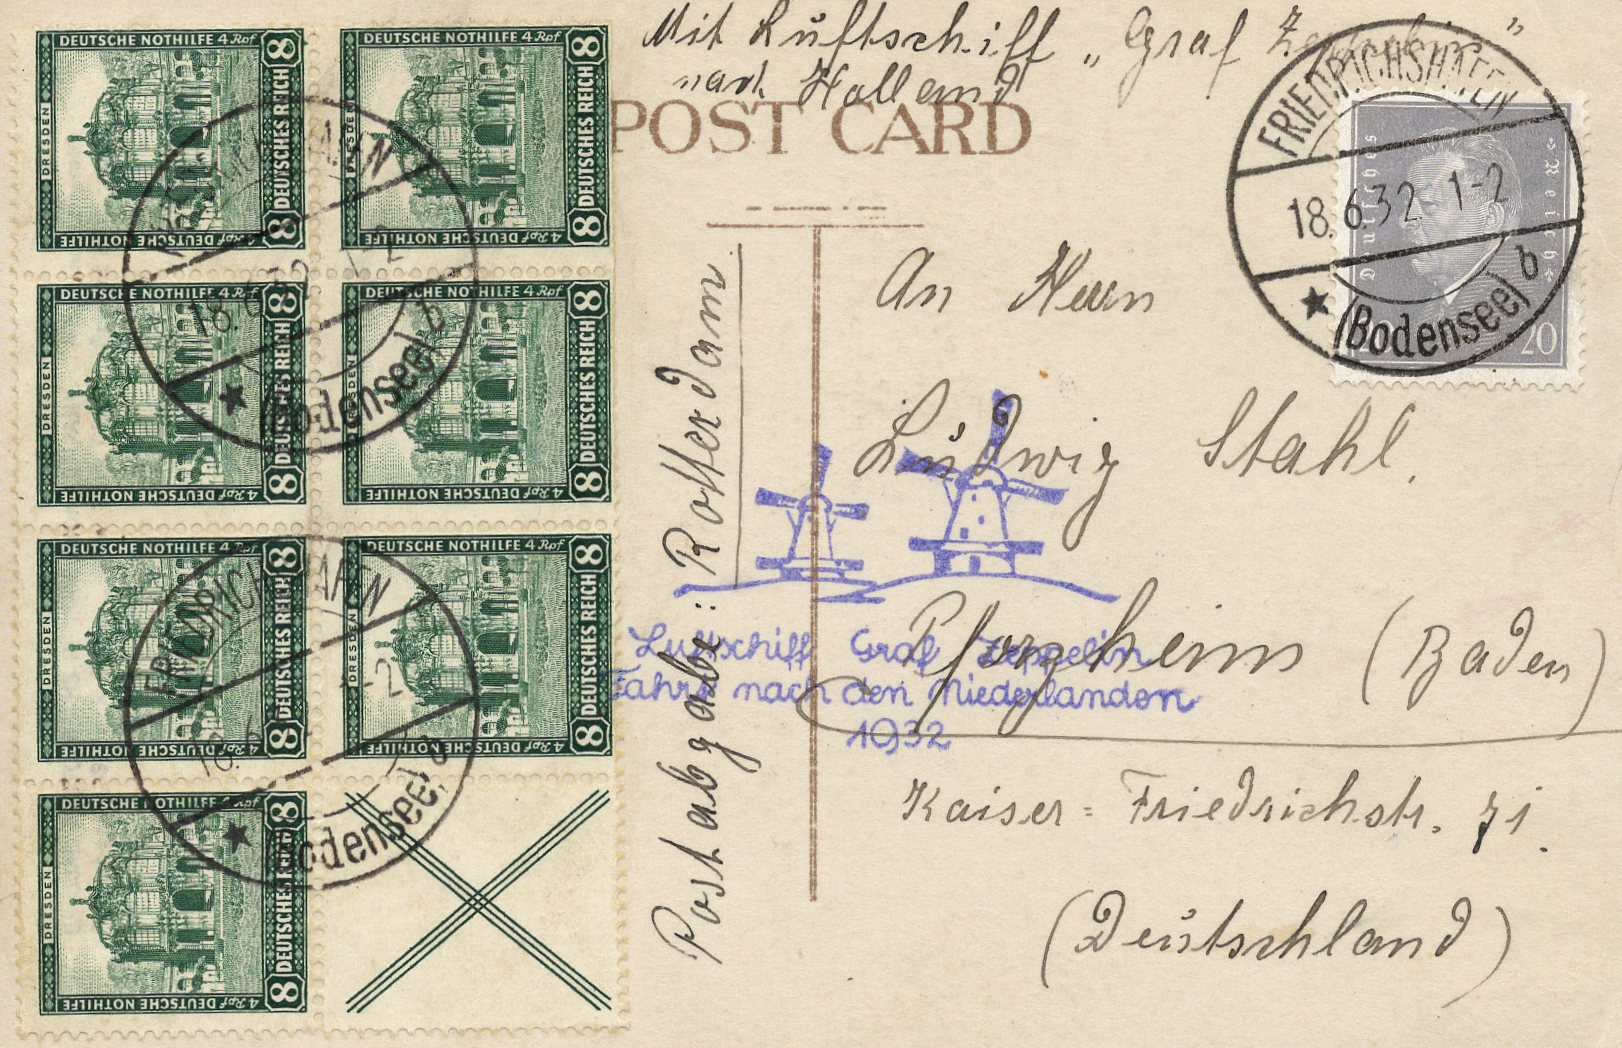 Mit Luftschiff „Graf Zeppelin"
nach Holland
POST CARD
DEUTSCHE NOTHILFE 4 Rpf
8 DEUTSCHES REICH 8
DRESDEN
4 Rpf DEUTSCHE NOTHILFE
DEUTSCHE NOTHILFE 4 Rpf
8 DEUTSCHES REICH 8
DRESDEN
4 Rpf DEUTSCHE NOTHILFE
DEUTSCHE NOTHILFE 4 Rpf
8 DEUTSCHES REICH 8
DRESDEN
4 Rpf DEUTSCHE NOTHILFE
DEUTSCHE NOTHILFE 4 Rpf
8 DEUTSCHES REICH 8
DRESDEN
4 Rpf DEUTSCHE NOTHILFE
DEUTSCHE NOTHILFE 4 Rpf
8 DEUTSCHES REICH 8
DRESDEN
4 Rpf DEUTSCHE NOTHILFE
DEUTSCHE NOTHILFE 4 Rpf
8 DEUTSCHES REICH 8
DRESDEN
4 Rpf DEUTSCHE NOTHILFE
DEUTSCHE NOTHILFE 4 Rpf
8 DEUTSCHES REICH 8
DRESDEN
4 Rpf DEUTSCHE NOTHILFE
FRIEDRICHSHAFEN
18.6.32 1-2
(Bodensee) b
FRIEDRICHSHAFEN
18.6.32 1-2
(Bodensee) b
FRIEDRICHSHAFEN
18.6.32 1-2
(Bodensee) b
Deutsches Reich
20
Postabgabe: Rotterdam
An Herrn
Ludwig Stahl.
Pforzheim (Baden)
Kaiser=Friedrichstr. 71.
(Deutschland)
Luftschiff Graf Zeppelin
Fahrt nach den Niederlanden
1932